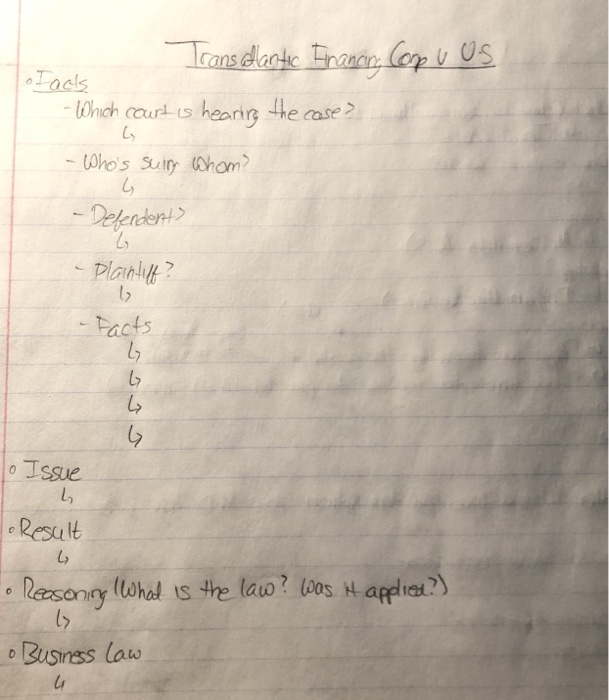 Transatlantic Financing Corp v US
• Facts
- Which court is hearing the case?
↳
- Who's suing whom?
↳
- Defendent?
↳
- Plaintiff?
↳
- Facts
↳
↳
↳
↳
• Issue
↳
• Result
↳
• Reasoning (What is the law? Was it applied?)
↳
• Business Law
↳